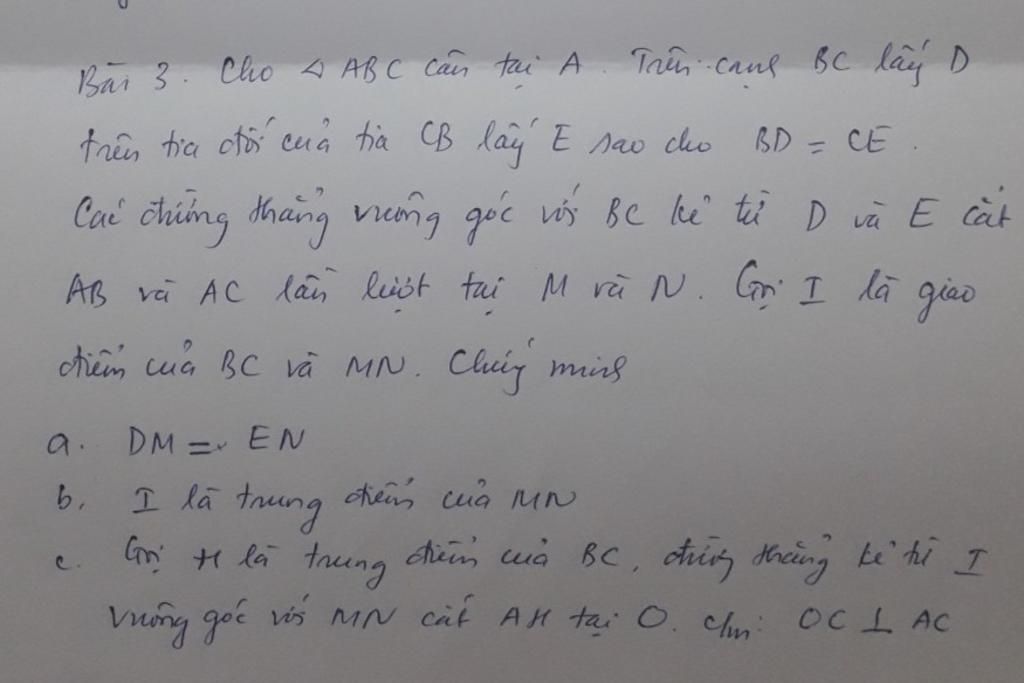 Bài 3. Cho △ ABC cân tại A. Trên cạnh BC lấy D
trên tia đối của tia CB lấy E sao cho BD = CE.
Các đường thẳng vuông góc với BC kẻ từ D và E cắt
AB và AC lần lượt tại M và N. Gọi I là giao
điểm của BC và MN. Chứng minh
a. DM = EN
b. I là trung điểm của MN
c. Gọi H là trung điểm của BC, đường thẳng kẻ từ I
vuông góc với MN cắt AH tại O. cm: OC ⊥ AC